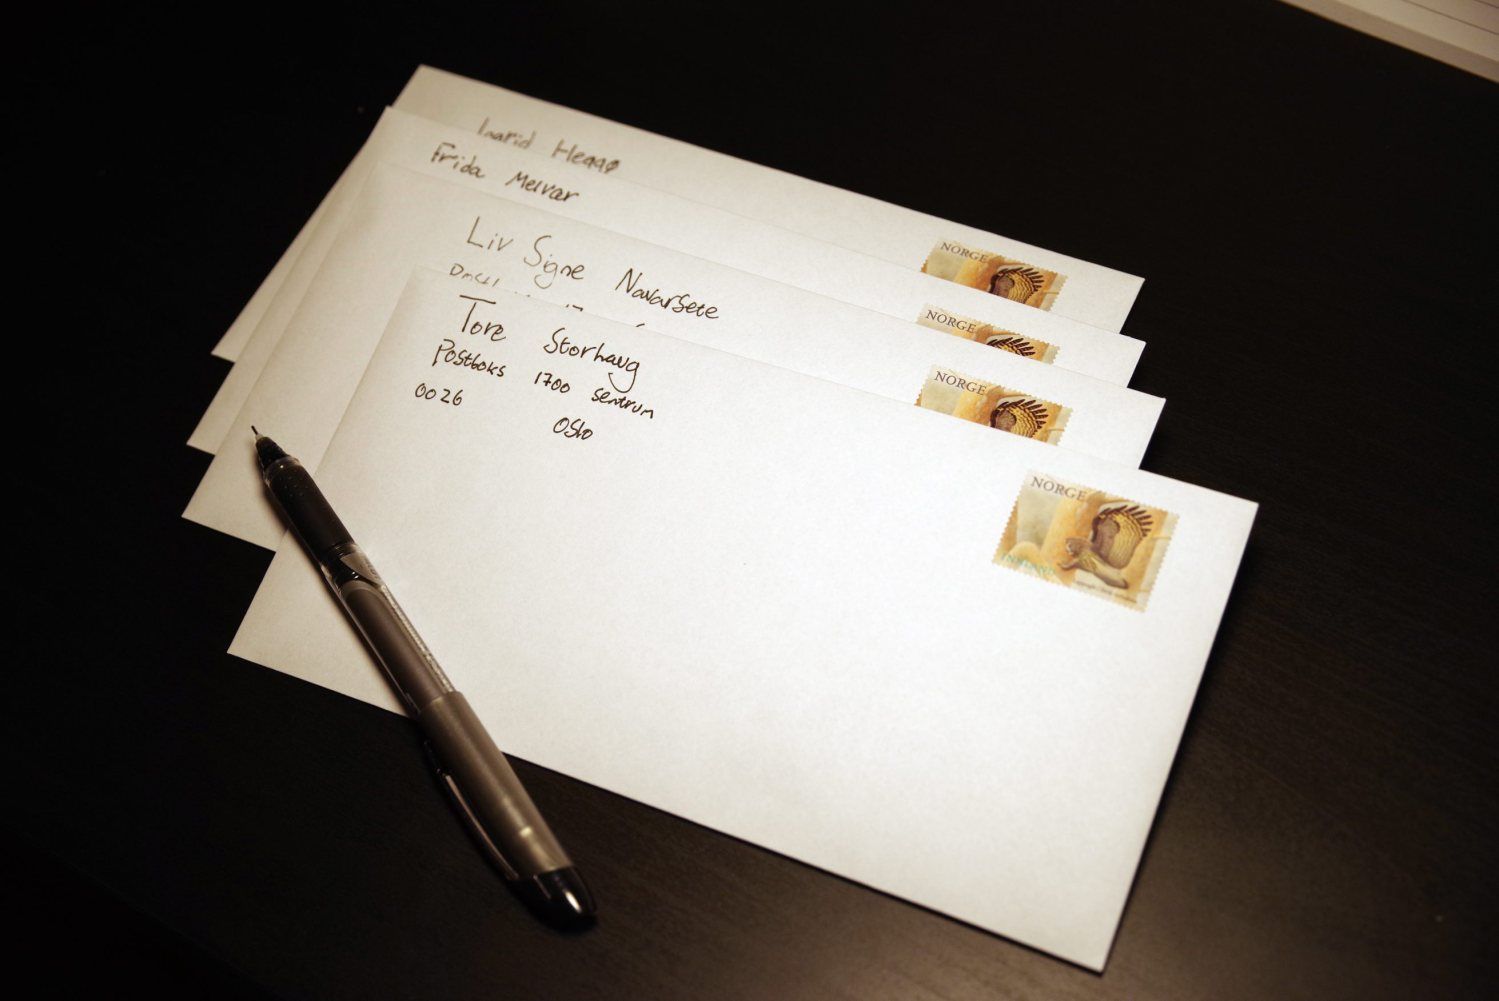 Ingrid Heggø
Frida Melvær
NORGE
Liv Signe Navarsete
NORGE
Tore Storhaug
Postboks 1700 sentrum
0026
Oslo
NORGE
NORGE
INNLAND